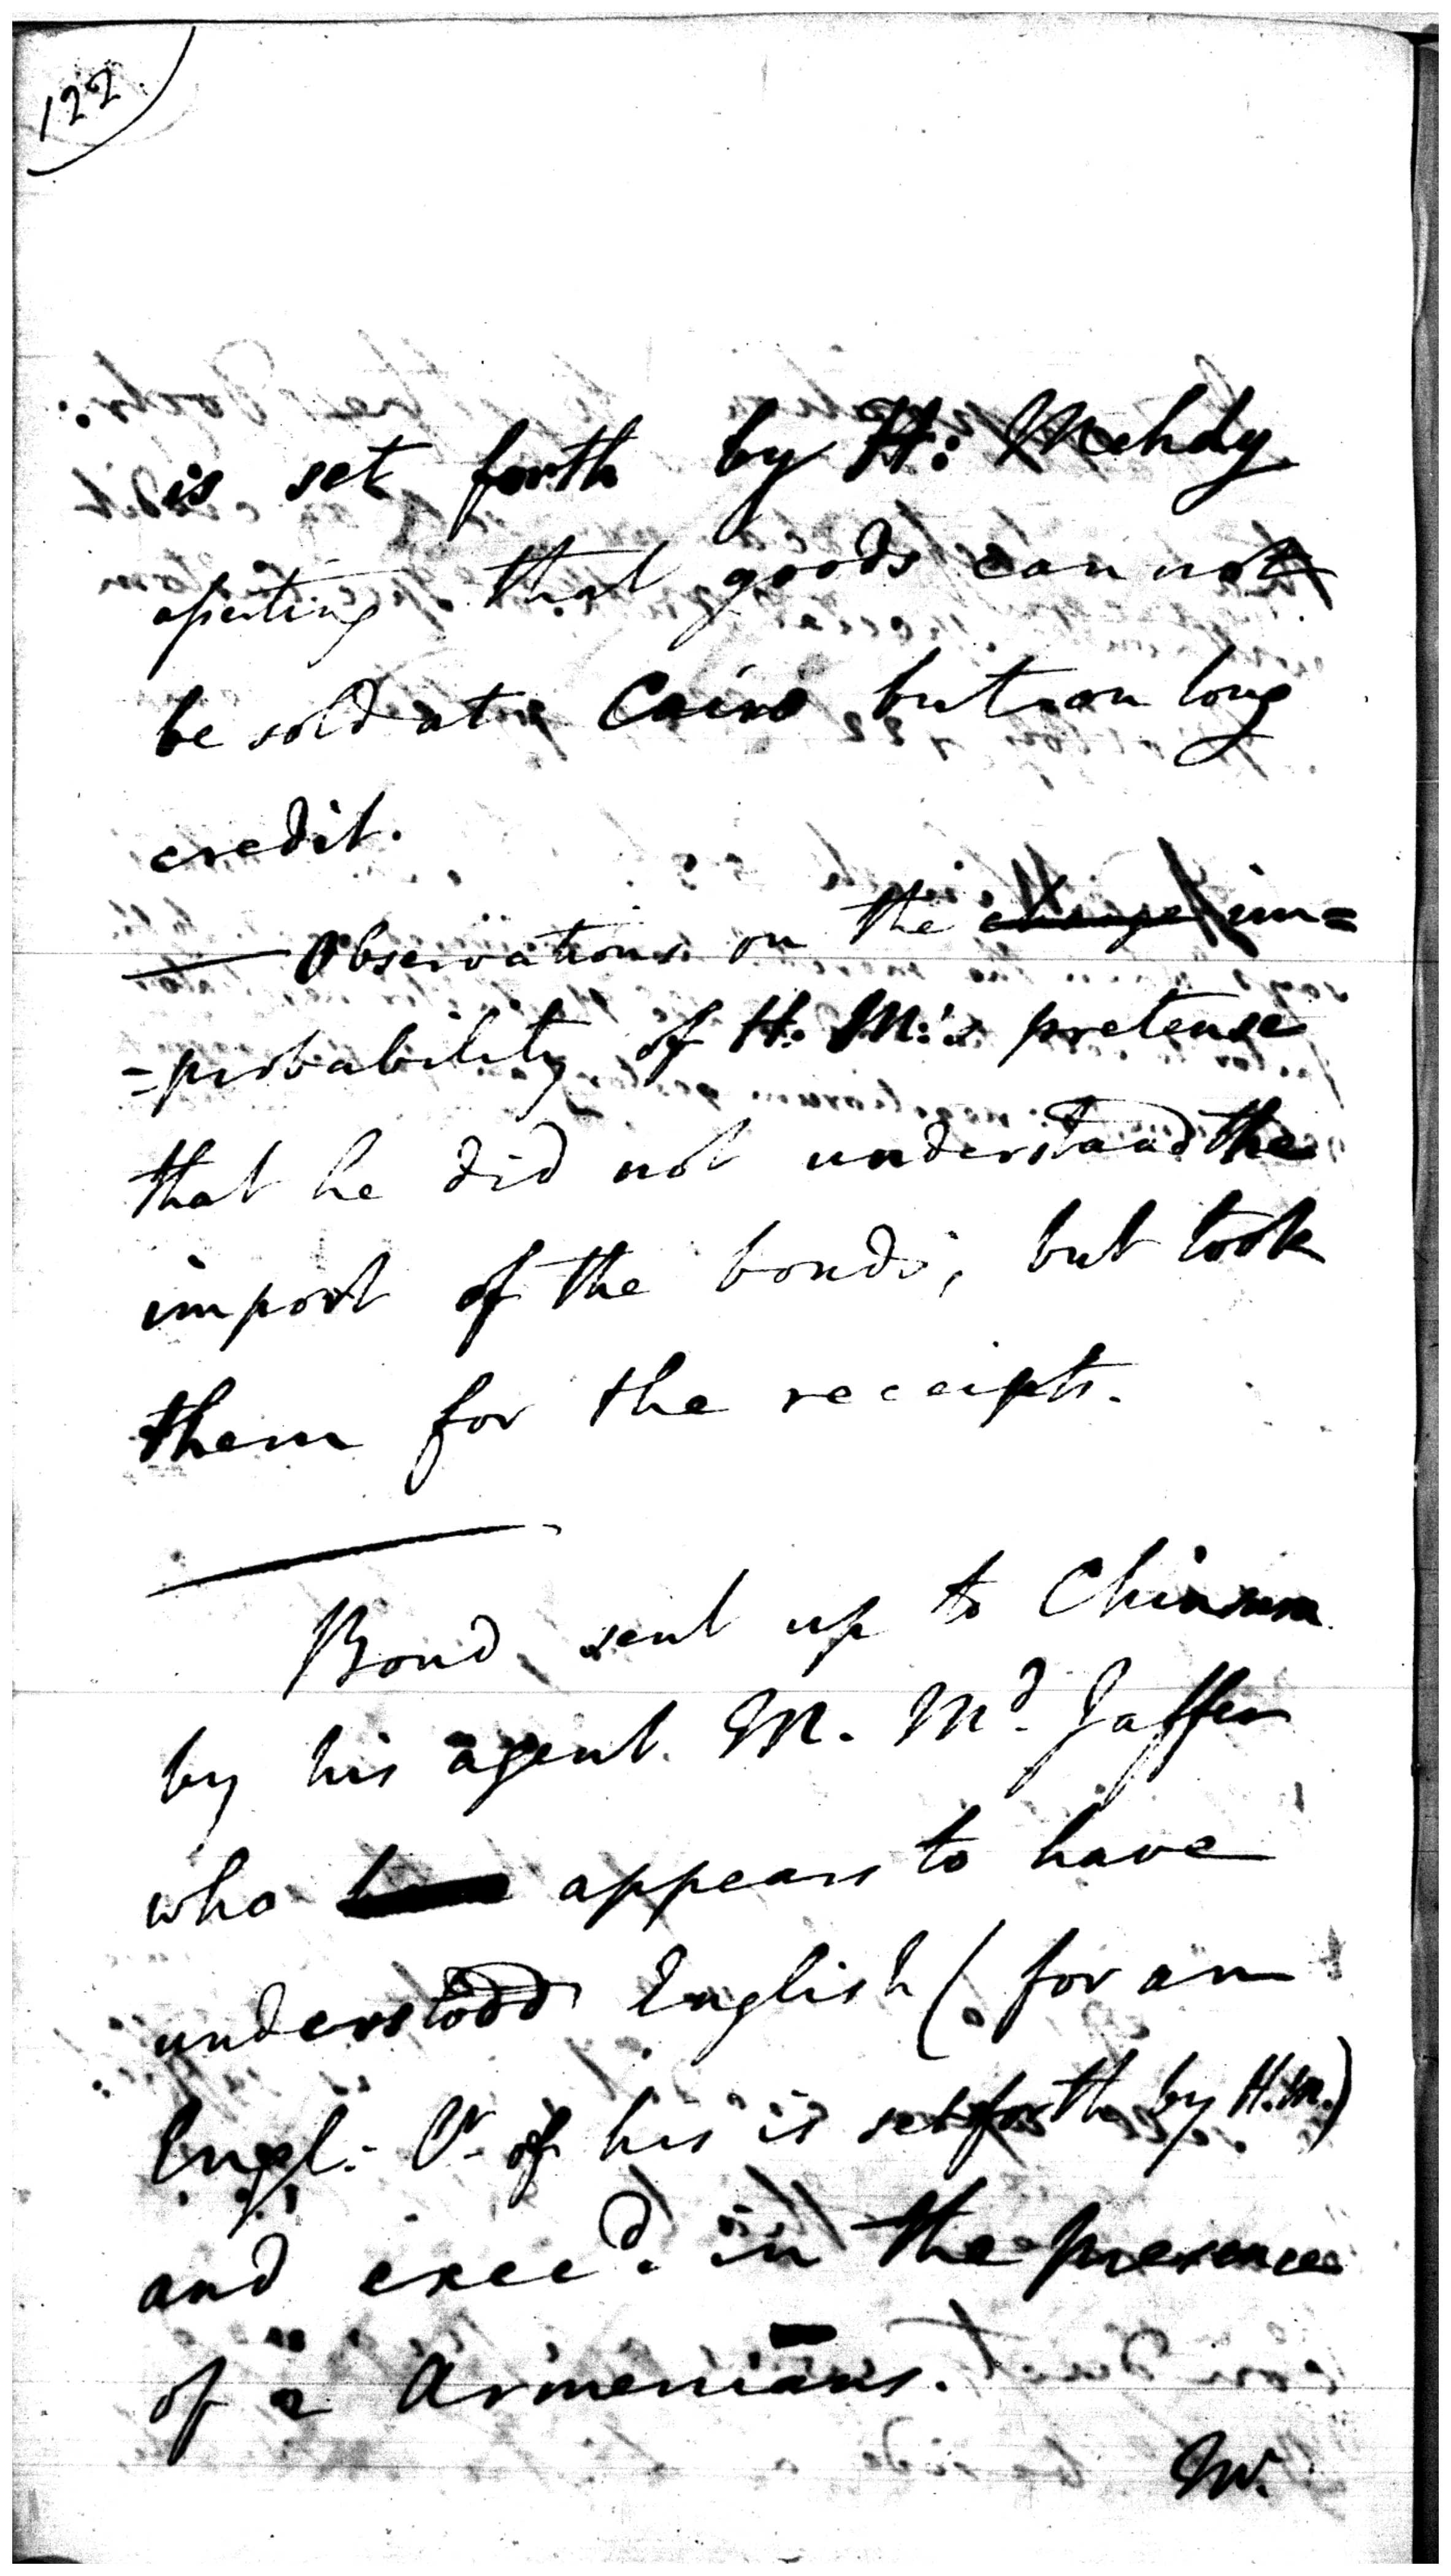 122
is set forth by H: Mehdy
asserting that goods can not
be sold at Cairo but on long
credit.
— Observations on the change im=
=probability of H. M:'s pretense
that he did not understand the
import of the bonds, but took
them for the receipts.
Bond sent up to Chinsura
by his agent M. Md. Jaffer
who appears to have
understood English (for an
Engl: Vr. of his is set forth by H.M.)
and execd. in the presence
of 2 Armenians.
Mr.